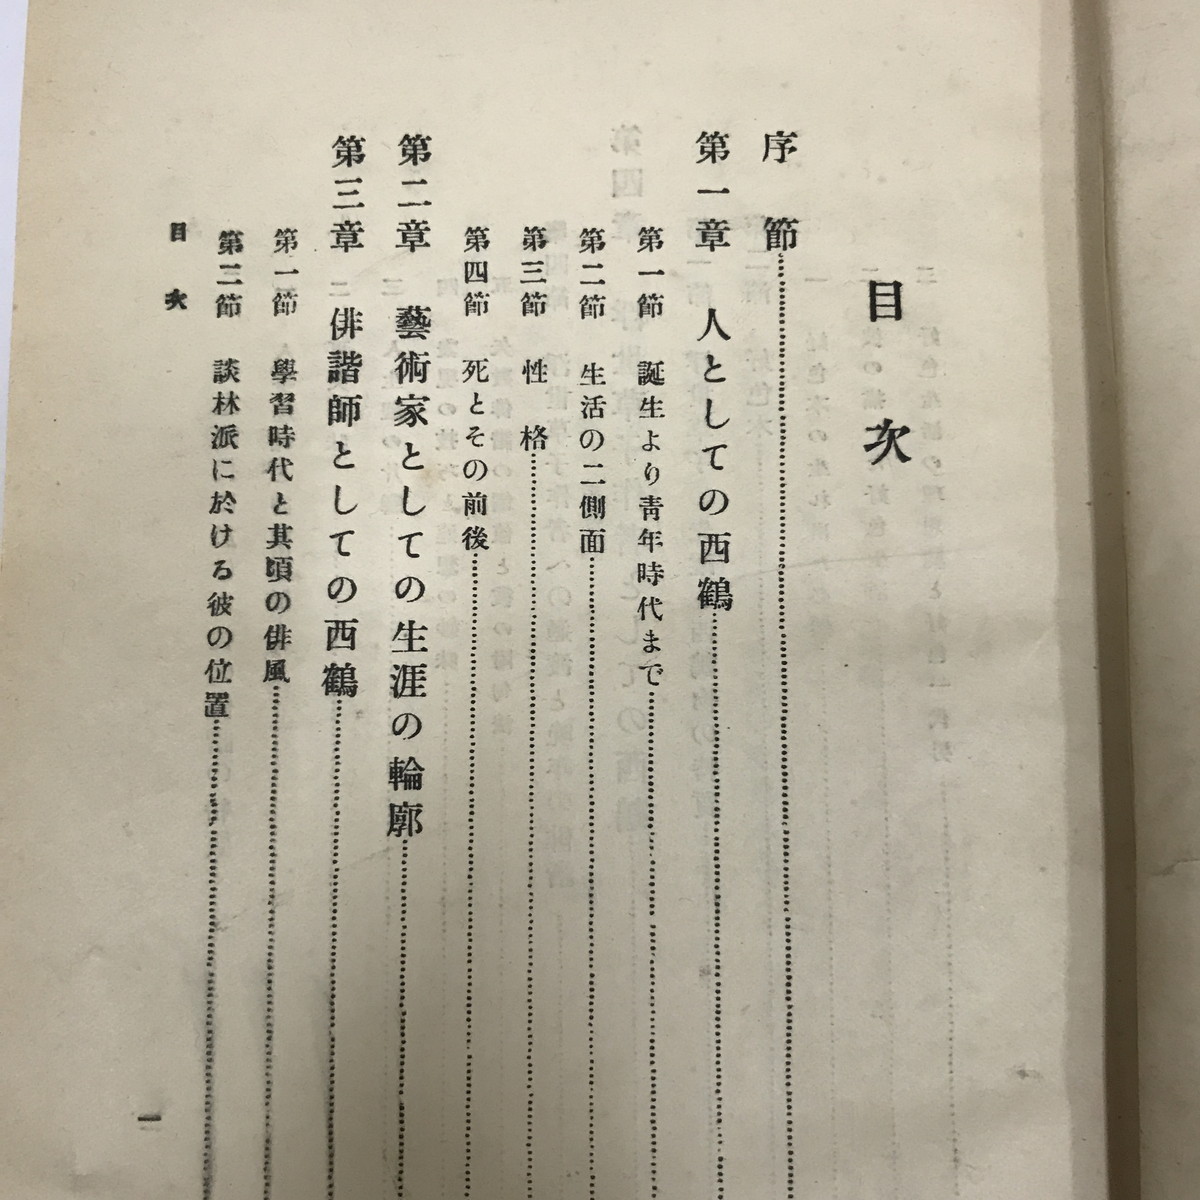 目次
序節
第一章 人としての西鶴
第一節 誕生より靑年時代まで
第二節 生活の二側面
第三節 性格
第四節 死とその前後
第二章 藝術家としての生涯の輪廓
第三章 俳諧師としての西鶴
第一節 學習時代と其頃の俳風
第二節 談林派に於ける彼の位置
目次
一